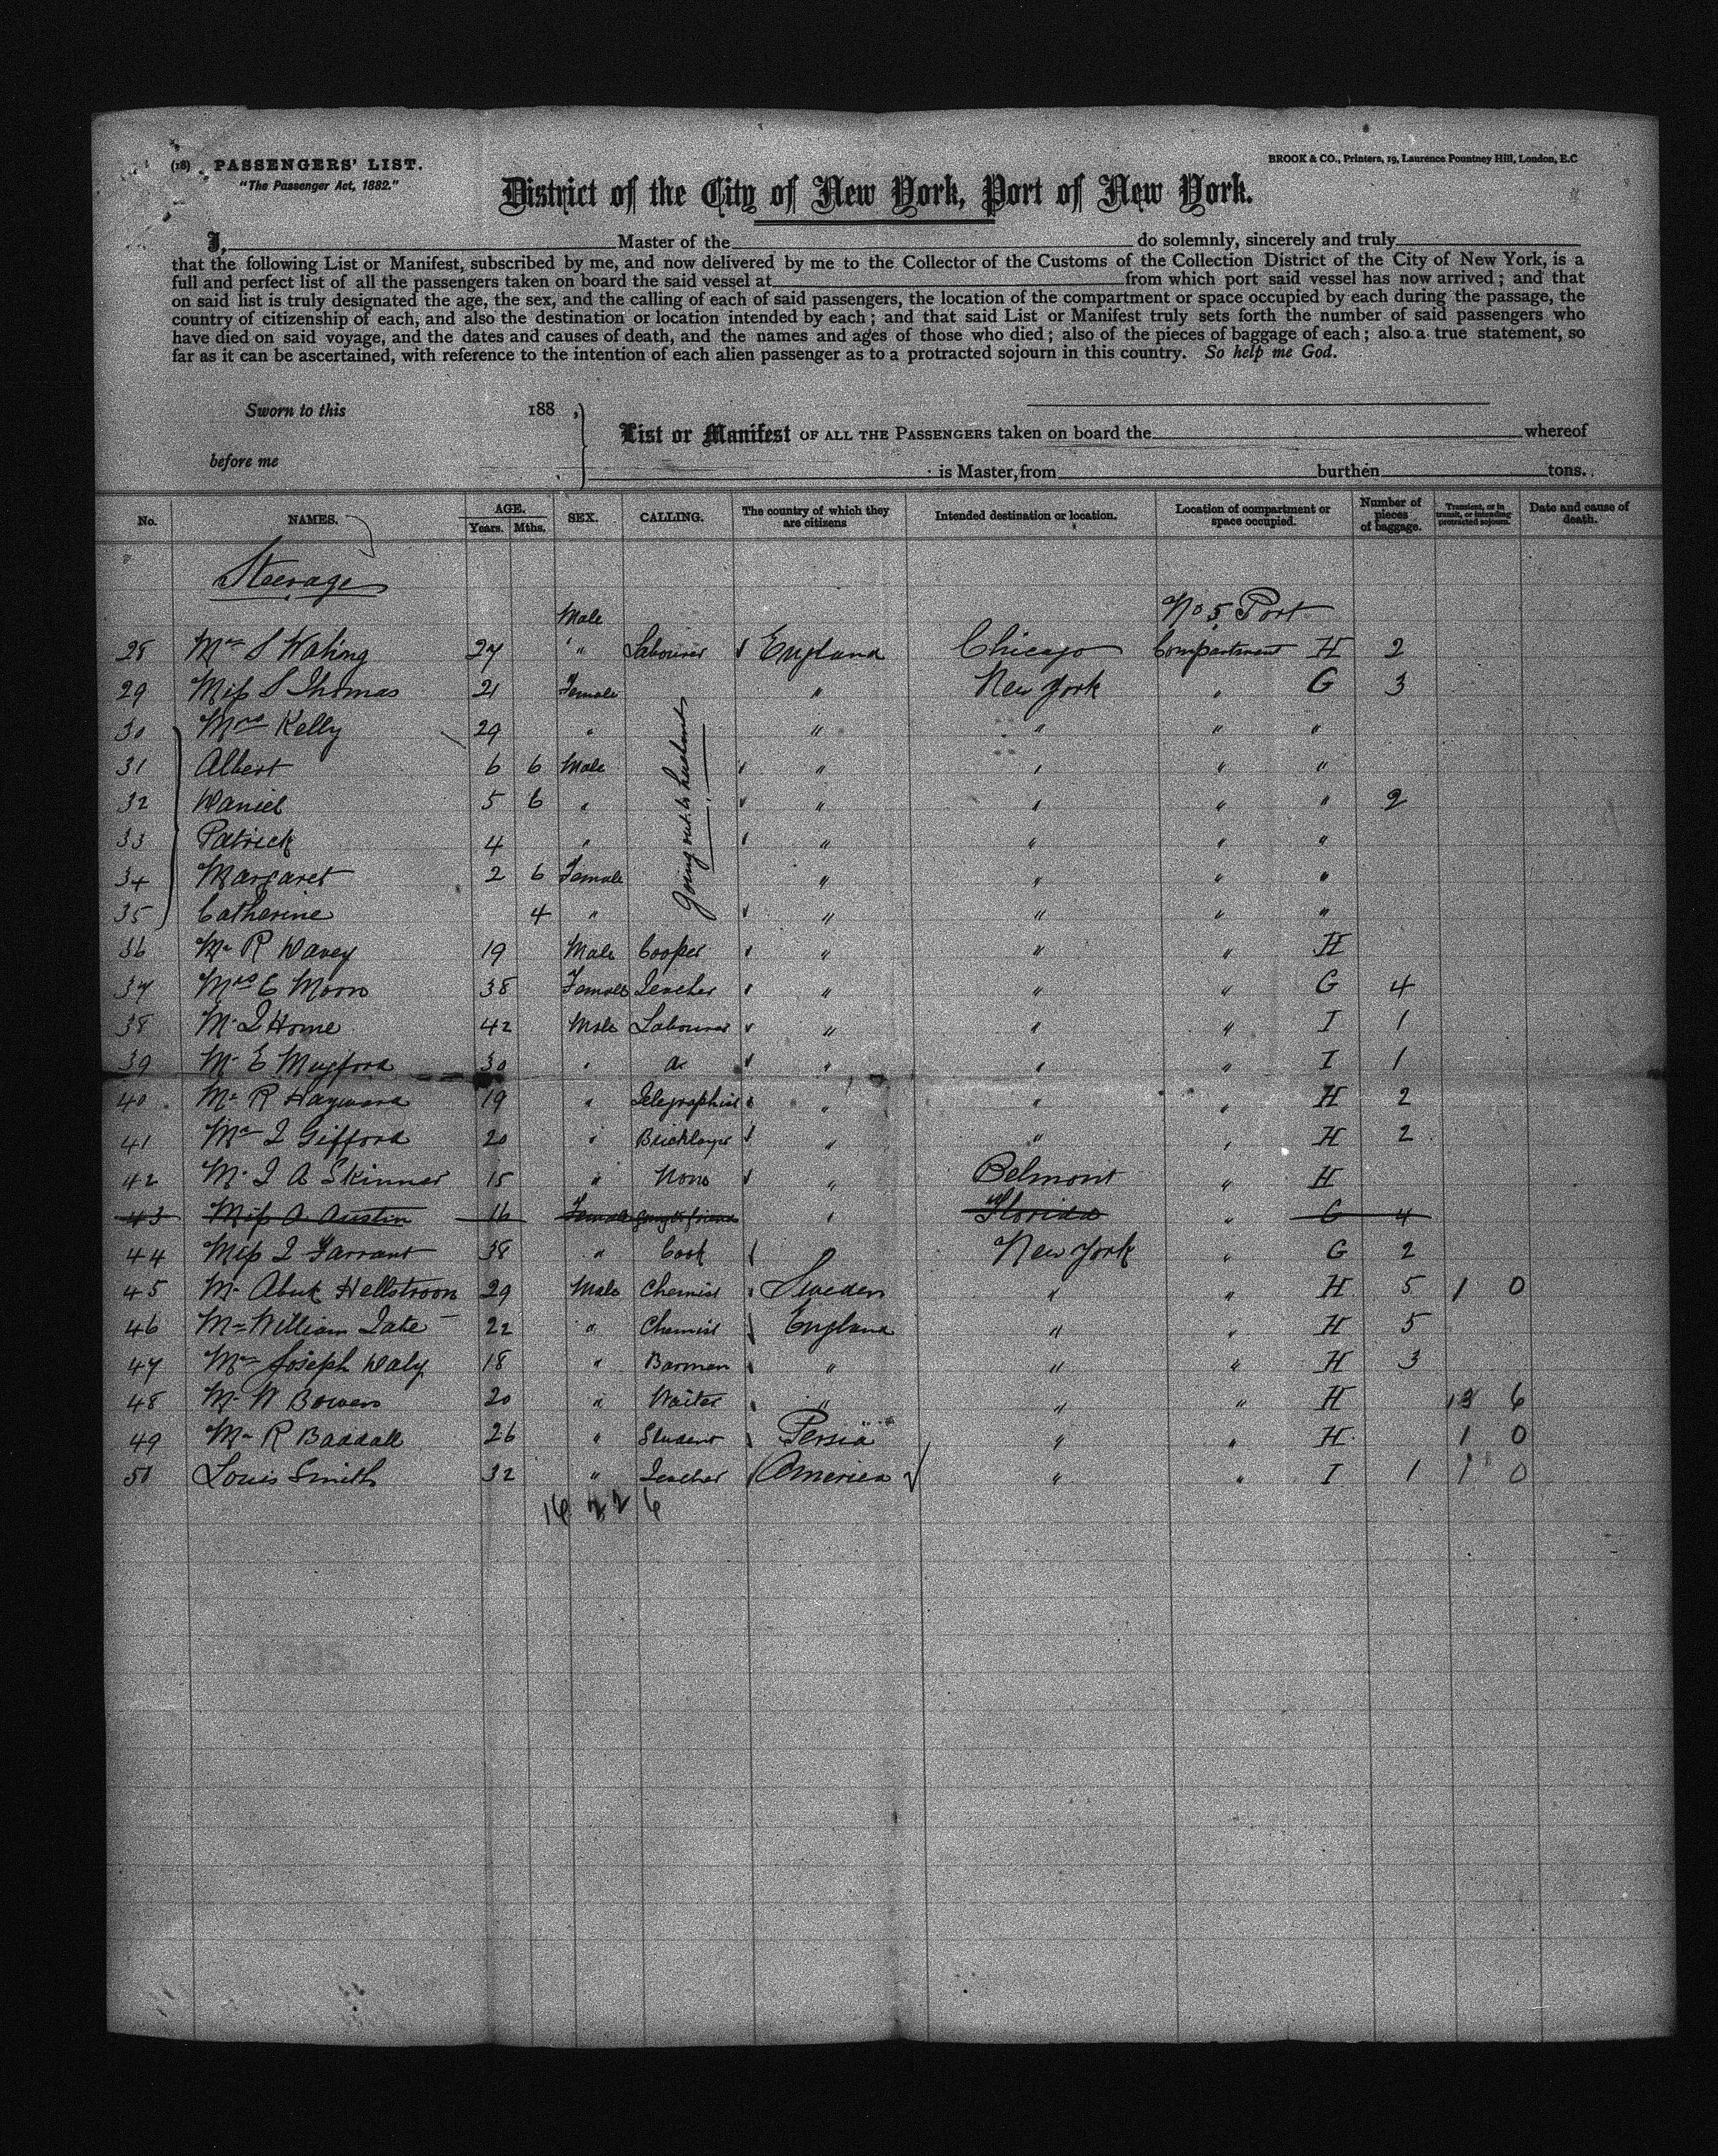 (18) PASSENGERS' LIST.
"The Passenger Act, 1882."
BROOK & CO., Printers, 19, Laurence Pountney Hill, London, E.C
District of the City of New York, Port of New York.
I, Master of the do solemnly, sincerely and truly
that the following List or Manifest, subscribed by me, and now delivered by me to the Collector of the Customs of the Collection District of the City of New York, is a
full and perfect list of all the passengers taken on board the said vessel at from which port said vessel has now arrived; and that
on said list is truly designated the age, the sex, and the calling of each of said passengers, the location of the compartment or space occupied by each during the passage, the
country of citizenship of each, and also the destination or location intended by each; and that said List or Manifest truly sets forth the number of said passengers who
have died on said voyage, and the dates and causes of death, and the names and ages of those who died; also of the pieces of baggage of each; also a true statement, so
far as it can be ascertained, with reference to the intention of each alien passenger as to a protracted sojourn in this country. So help me God.
Sworn to this 188 ,
List or Manifest OF ALL THE PASSENGERS taken on board the whereof
before me
is Master, from burthen tons.
No. NAMES. AGE. Years. Mths. SEX. CALLING. The country of which they are citizens Intended destination or location. Location of compartment or space occupied. Number of pieces of baggage. Transient, or in transit, or intending protracted sojourn. Date and cause of death.
Steerage
Male No 5 Port
28 Mr S 27 " Labourer England Chicago Compartment H 2
29 Miss S Thomas 21 Female " New York " G 3
30 Mrs Kelly 29 " " " " "
31 Albert 6 6 Male " " " "
32 Daniel 5 6 " " " " " 2
33 Patrick 4 " " " " "
34 Margaret 2 6 Female " " " "
35 Catherine 4 " " " " "
Going out to husband
36 Mr R Davey 19 Male Cooper " " " H
37 Mrs E Moon 38 Female Teacher " " " G 4
38 Mr J Horne 42 Male Labourer " " " I 1
39 Mr E Mugford 30 " " " " I 1
40 Mr R Hayward 19 " Telegraphist " " " H 2
41 Mr J Gifford 20 " Bricklayer " " " H 2
42 Mr J A Skinner 15 " None " Belmont " H
43 Miss A Austin 16 Female going to friends " Florida " G 4
44 Miss J Farrant 38 " Cook New York " G 2
45 Mr Hellstroom 29 Male Chemist Sweden " " H 5 1 0
46 Mr William Tate 22 " Chemist England " " H 5
47 Mr Joseph Daly 18 " Barman " " " H 3
48 Mr W Bowen 20 " Waiter " " " H 6
49 Mr R Baddall 26 " Student Persia " " H 1 0
50 Louis Smith 32 " Teacher America " " I 1 1 0